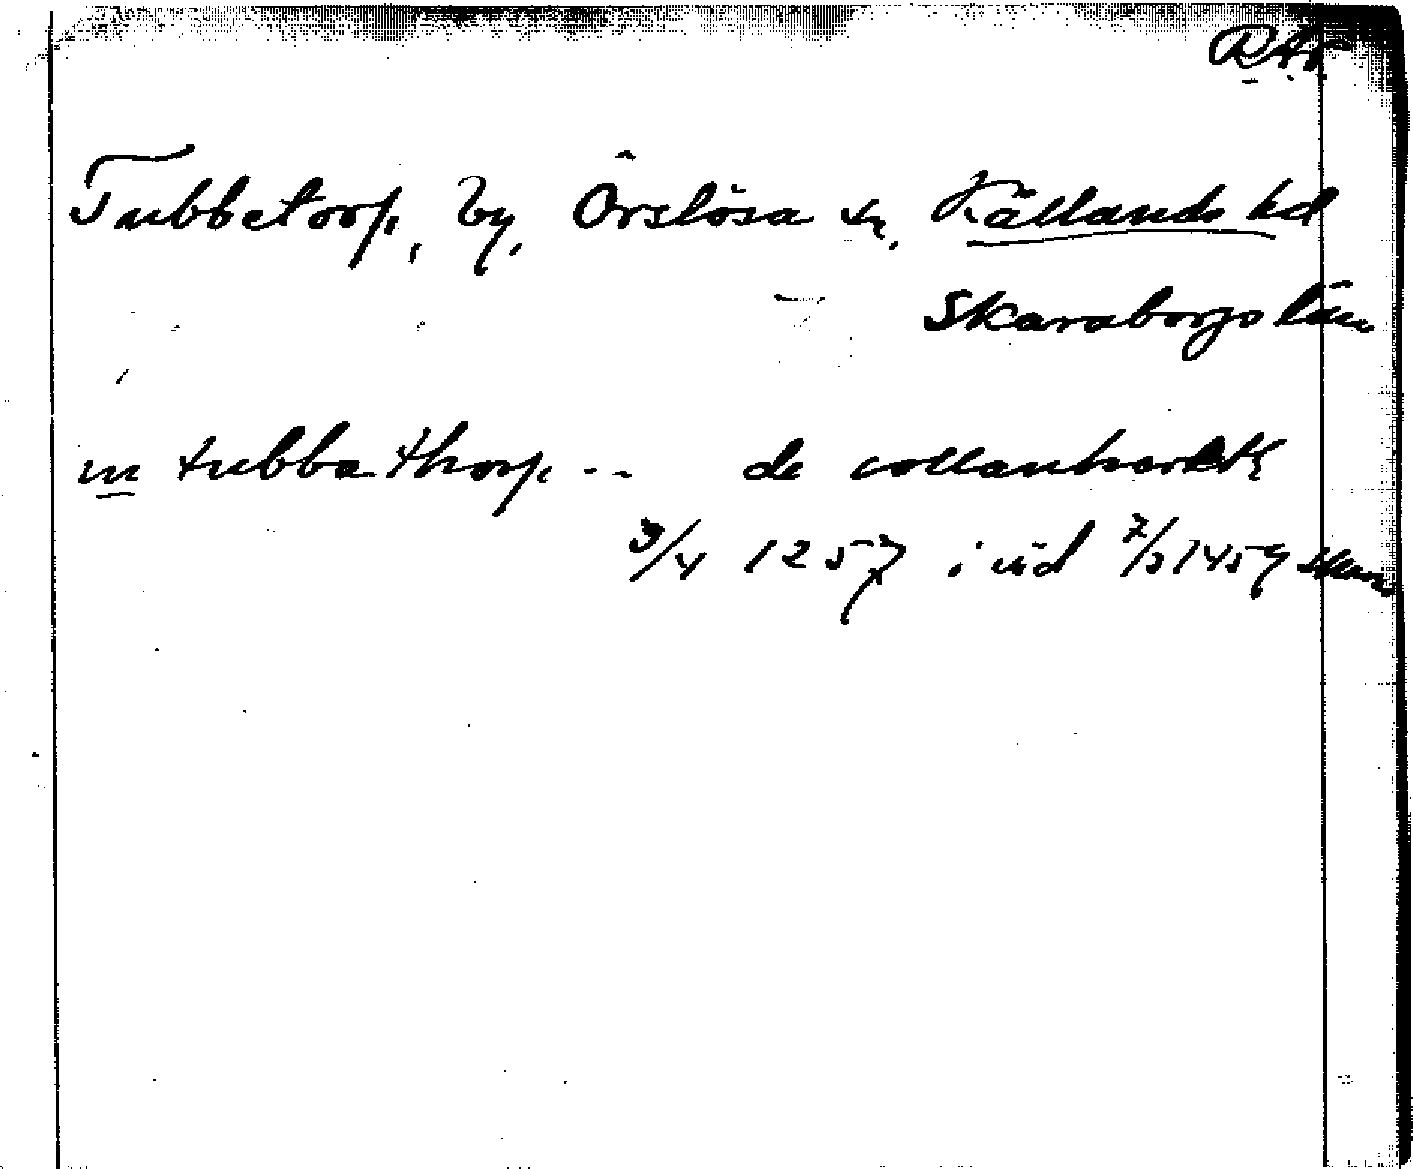 RAp
Tubbetorp, by, Örslösa sn, Kållands hd
Skaraborgs län
in tubbathorp -- de collanhæræth
3/4 1257 i vid 7/3 1459